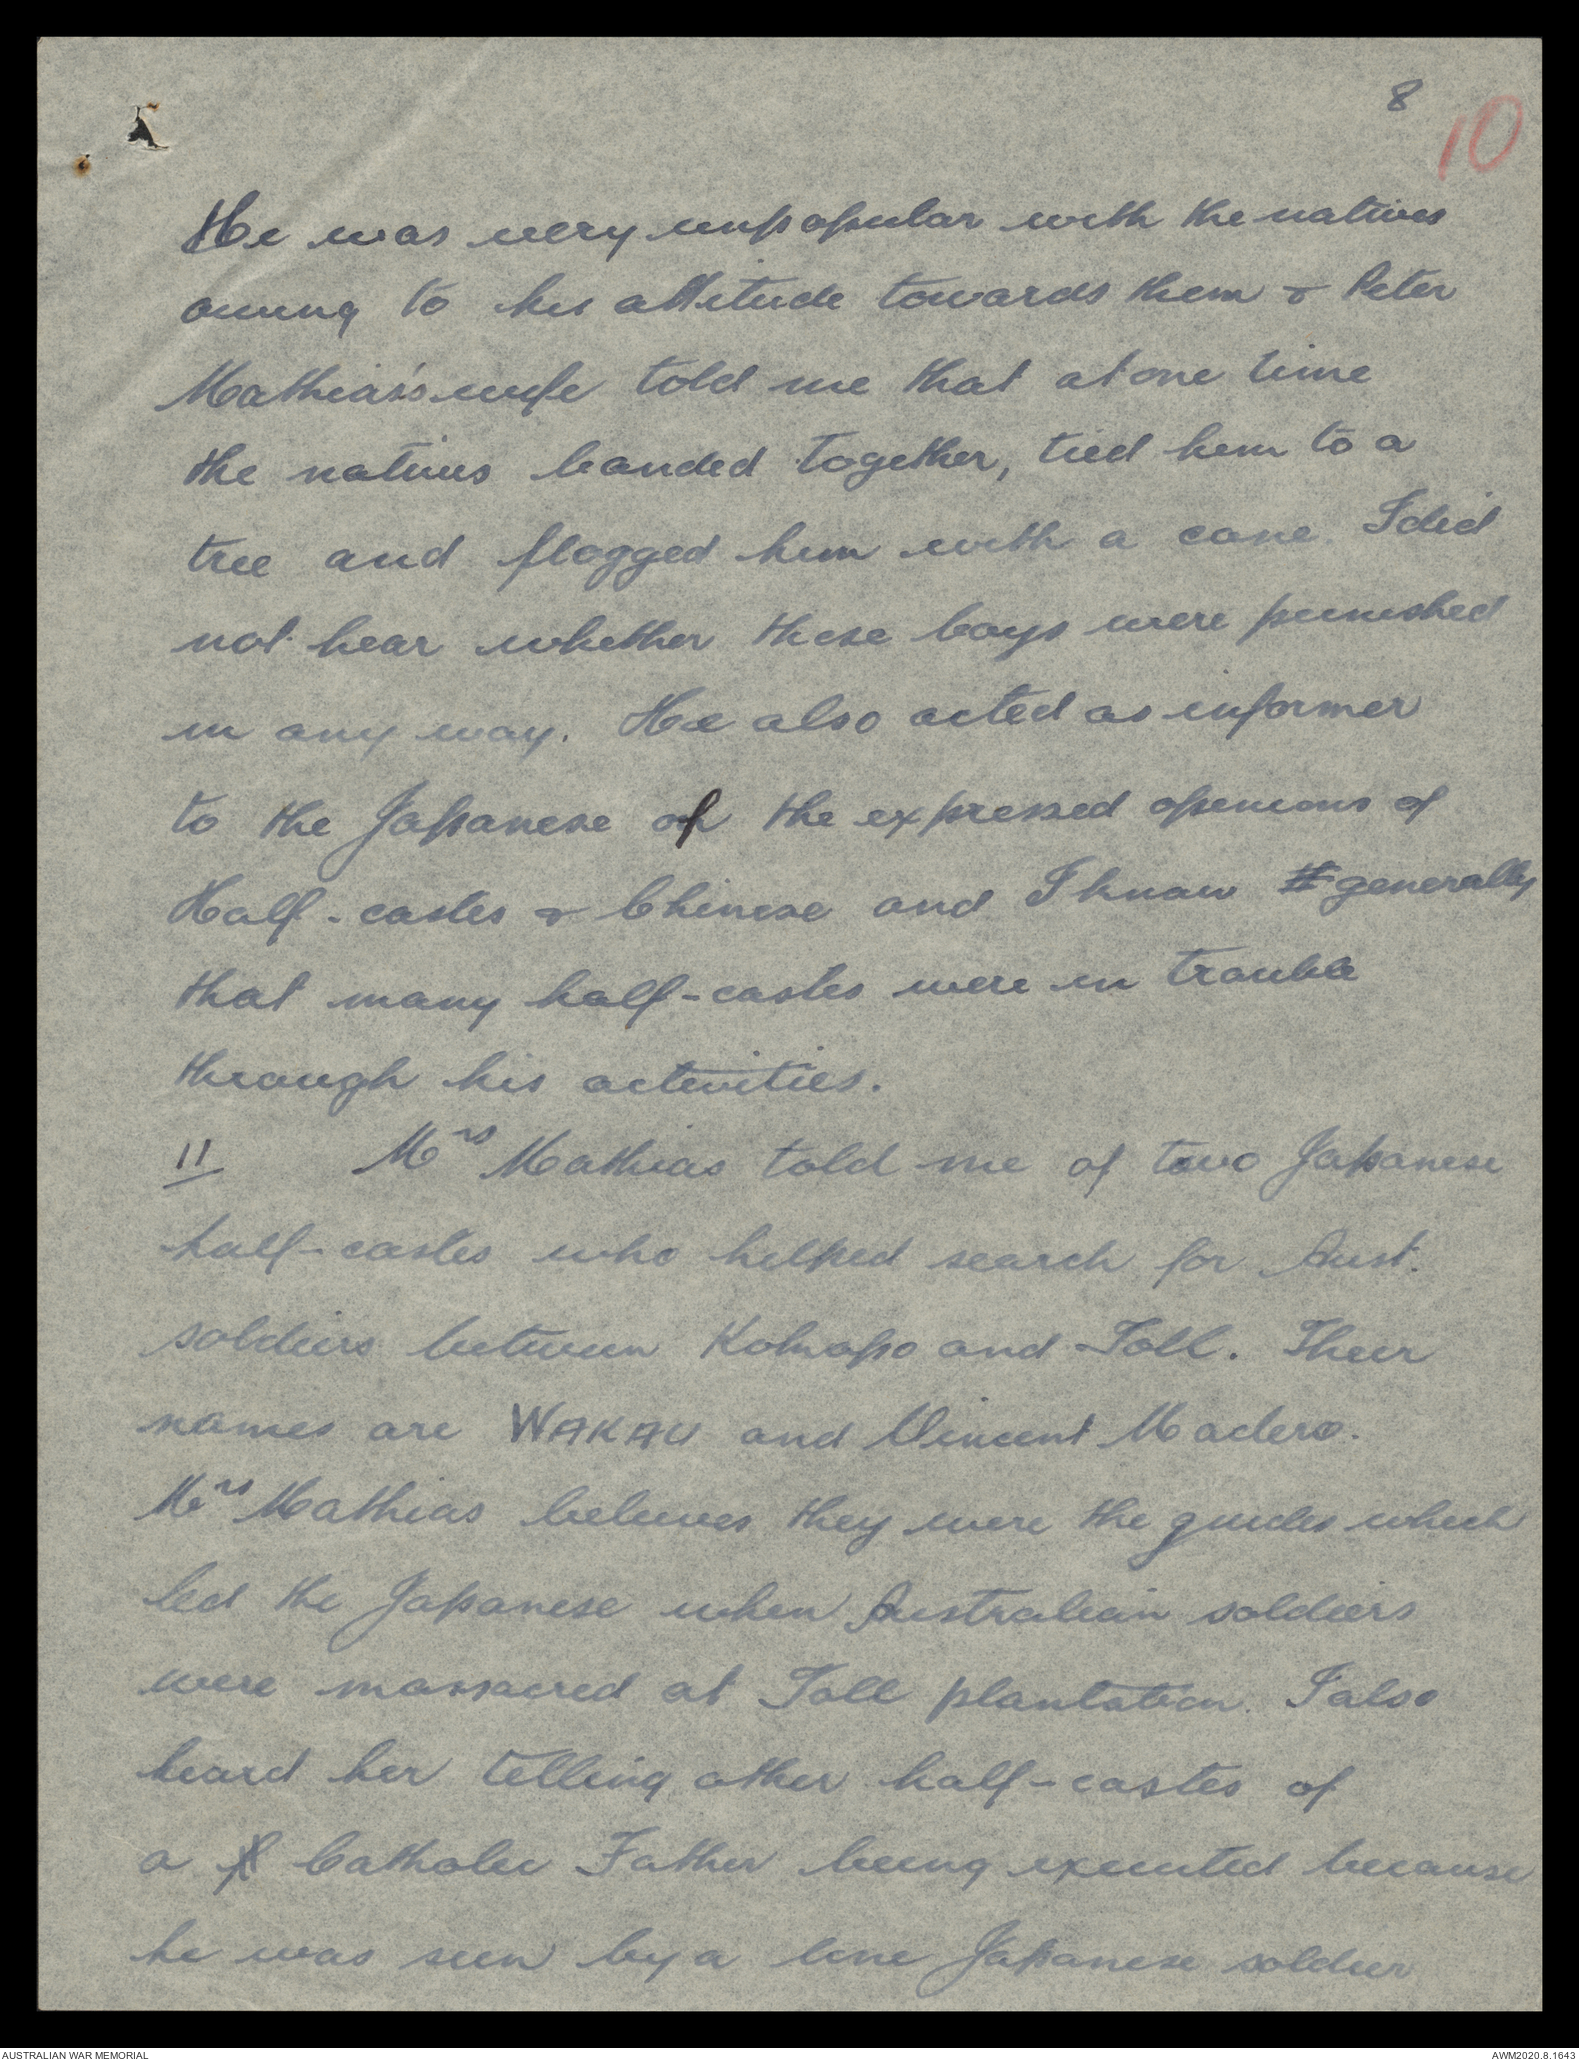 8
10
He was very unpopular with the natives
owing to his attitude towards them & Peter
Mathias's wife told me that at one time
the natives banded together, tied him to a
tree and flogged him with a cane. I did
not hear whether these boys were punished
in any way. He also acted as informer
to the Japanese of the expressed opinions of
Half-castes & Chinese and I know generally
that many half-castes were in trouble
through his activities.
11 Mrs Mathias told me of two Japanese
half-castes who helped search for Aust.
soldiers between Kokopo and Toll. Their
names are WAKAU and Vincent Madero.
Mrs Mathias believes they were the guides which
led the Japanese when Australian soldiers
were massacred at Toll plantation. I also
heard her telling other half-castes of
a Catholic Father being executed because
he was seen by a line Japanese soldier
AUSTRALIAN WAR MEMORIAL
AWM2020.8.1643